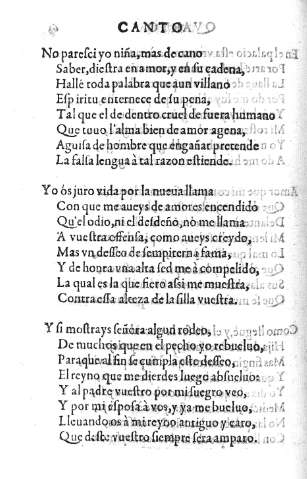 CANTO
No paresci yo niña, mas de cano
Saber, diestra en amor, y en su cadena,
Hallè toda palabra que a un villano
Espiritu enternece de su pena,
Tal que el de dentro cruel de fuera humano
Que tuuo l'alma bien de amor agena,
A guisa de hombre que engañar pretende
La falsa lengua à tal razon estiende.
Yo ós juro vida por la nueua llama
Con que me aueys de amores encendido
Qu'el odio, ni el desdeño, nò me llama
A vuestra offensa, como aueys creydo,
Mas vn desseo de sempiterna fama,
Y de honra vna alta sed me à compelido,
La qual es la que fiero assi me muestra,
Contra essa alteza de la silla vuestra.
Y si mostrays señora algun rodeo,
De muchos que en el pecho yo rebueluo,
Para que al fin se cumpla esto desseo,
El reyno que me dierdes luego absueluo:
Y al padre vuestro por mi suegro veo,
Y por mi esposa à vos, y ya me bueluo,
Lleuandoos à mi reyno antiguo y caro,
Que deste vuestro siempre serà amparo.